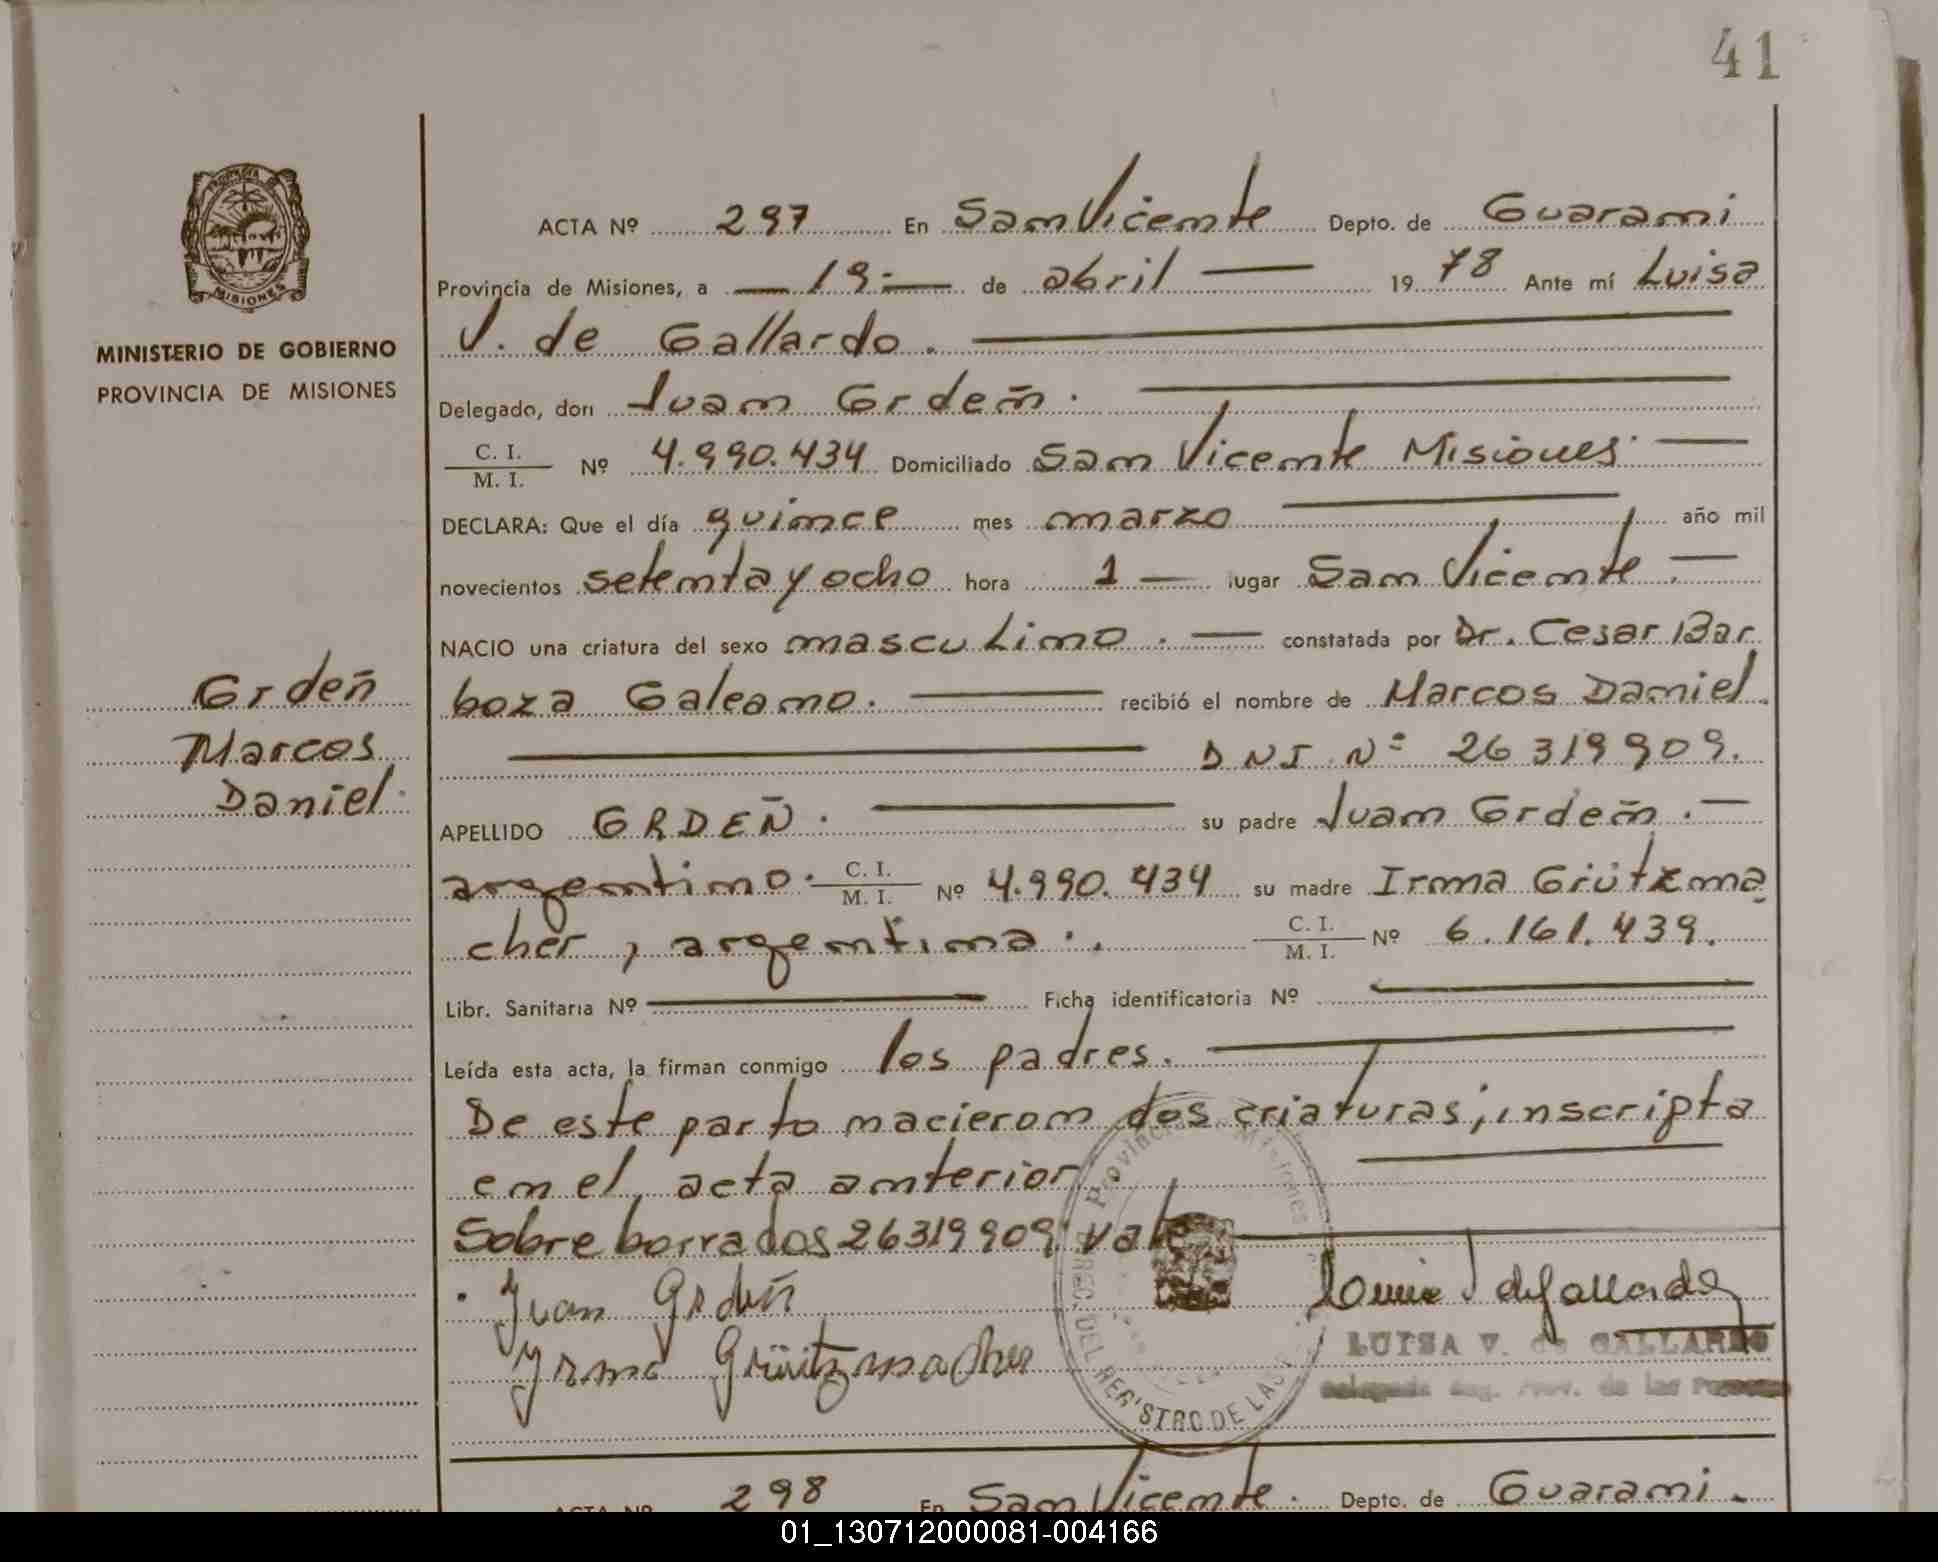 41
PROVINCIA DE
MISIONES
MINISTERIO DE GOBIERNO
PROVINCIA DE MISIONES
Grdeñ
Marcos
Daniel.
ACTA Nº 297 En San Vicente Depto. de Guarani
Provincia de Misiones, a — 19 — de abril — 1978 Ante mí Luisa
V. de Gallardo. —
Delegado, don Juan Grdeñ. —
C. I. / M. I. Nº 4.990.434 Domiciliado San Vicente Misiones. —
DECLARA: Que el día quince mes marzo — año mil
novecientos setenta y ocho hora 1 — lugar San Vicente. —
NACIO una criatura del sexo masculino. — constatada por Dr. Cesar Bar
boza Galeano. — recibió el nombre de Marcos Daniel.
— DNI Nº 26319909.
APELLIDO GRDEÑ. — su padre Juan Grdeñ. —
argentino. C. I. / M. I. Nº 4.990.434 su madre Irma Grützma
cher, argentina. C. I. / M. I. Nº 6.161.439.
Libr. Sanitaria Nº — Ficha identificatoria Nº —
Leída esta acta, la firman conmigo los padres. —
De este parto nacieron dos criaturas, inscripta
en el acta anterior. —
Sobre borrados 26319909: vale —
Juan Grdeñ
Yrma Grüitzmacher
Provincia Misiones
DEL REGISTRO DE LAS
LUISA V. de GALLARDO
Delegada Reg. Prov. de las Personas
ACTA Nº 298 En San Vicente. Depto. de Guarani.
01_130712000081-004166